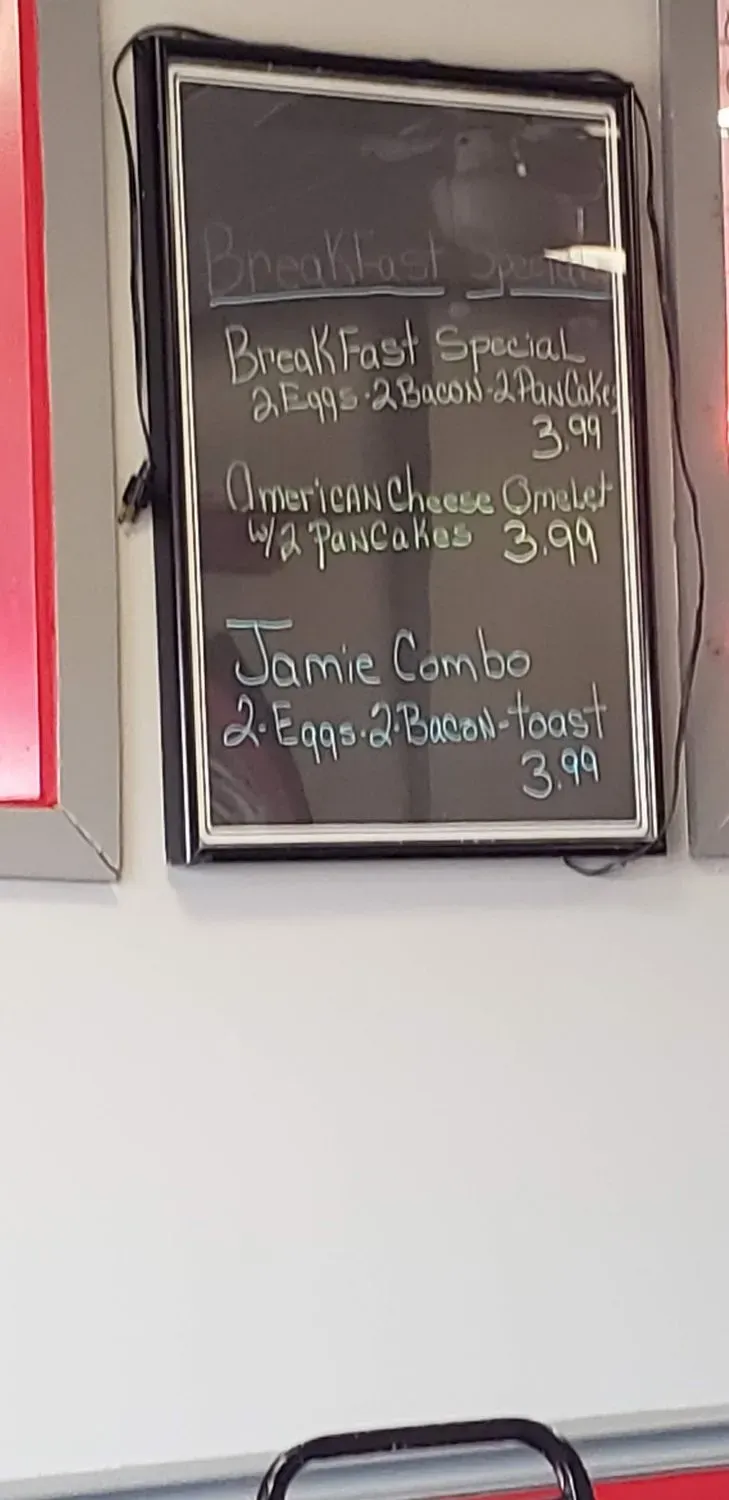 BreakFast Specials
BreaKFast Special
2 Eggs · 2 Bacon - 2 PanCakes
3.99
AmericAN Cheese Omelet
w/2 PaNCakes 3.99
Jamie Combo
2 · Eggs · 2 · BacoN - toast
3.99